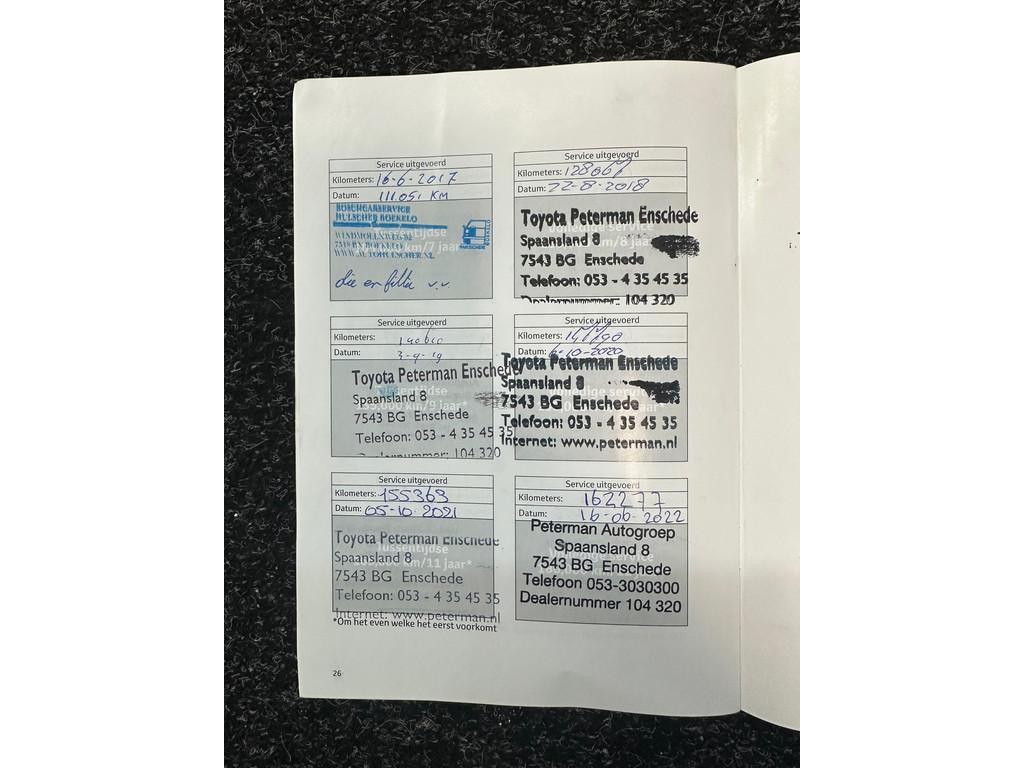 Service uitgevoerd
Kilometers: 16-6-2017
Datum: 111051 KM
BOSCHCARSERVICE
HULSCHER BOEKELO
WINDMOLENWEG
BOEKELO
WWW.AUTOHULSCHER.NL
Tussentijdse
km/7 jaar
olie en filter v.v.
Service uitgevoerd
Kilometers: 128067
Datum: 22-8-2018
Toyota Peterman Enschede
Spaansland 8
7543 BG Enschede
Telefoon: 053 - 4 35 45 35
Dealernummer: 104 320
Volledige service
km/8 jaar
Service uitgevoerd
Kilometers:
Datum: 3-9-19
Toyota Peterman Enschede
Spaansland 8
7543 BG Enschede
Telefoon: 053 - 4 35 45 35
Dealernummer: 104 320
Tussentijdse
135.000 km/9 jaar*
Service uitgevoerd
Kilometers:
Datum: 6-10-2020
Toyota Peterman Enschede
Spaansland 8
7543 BG Enschede
Telefoon: 053 - 4 35 45 35
Internet: www.peterman.nl
Volledige service
Service uitgevoerd
Kilometers: 155363
Datum: 05-10-2021
Toyota Peterman Enschede
Spaansland 8
7543 BG Enschede
Telefoon: 053 - 4 35 45 35
Internet: www.peterman.nl
Tussentijdse
km/11 jaar*
Service uitgevoerd
Kilometers: 162277
Datum: 16-06-2022
Peterman Autogroep
Spaansland 8
7543 BG Enschede
Telefoon 053-3030300
Dealernummer 104 320
*Om het even welke het eerst voorkomt
26